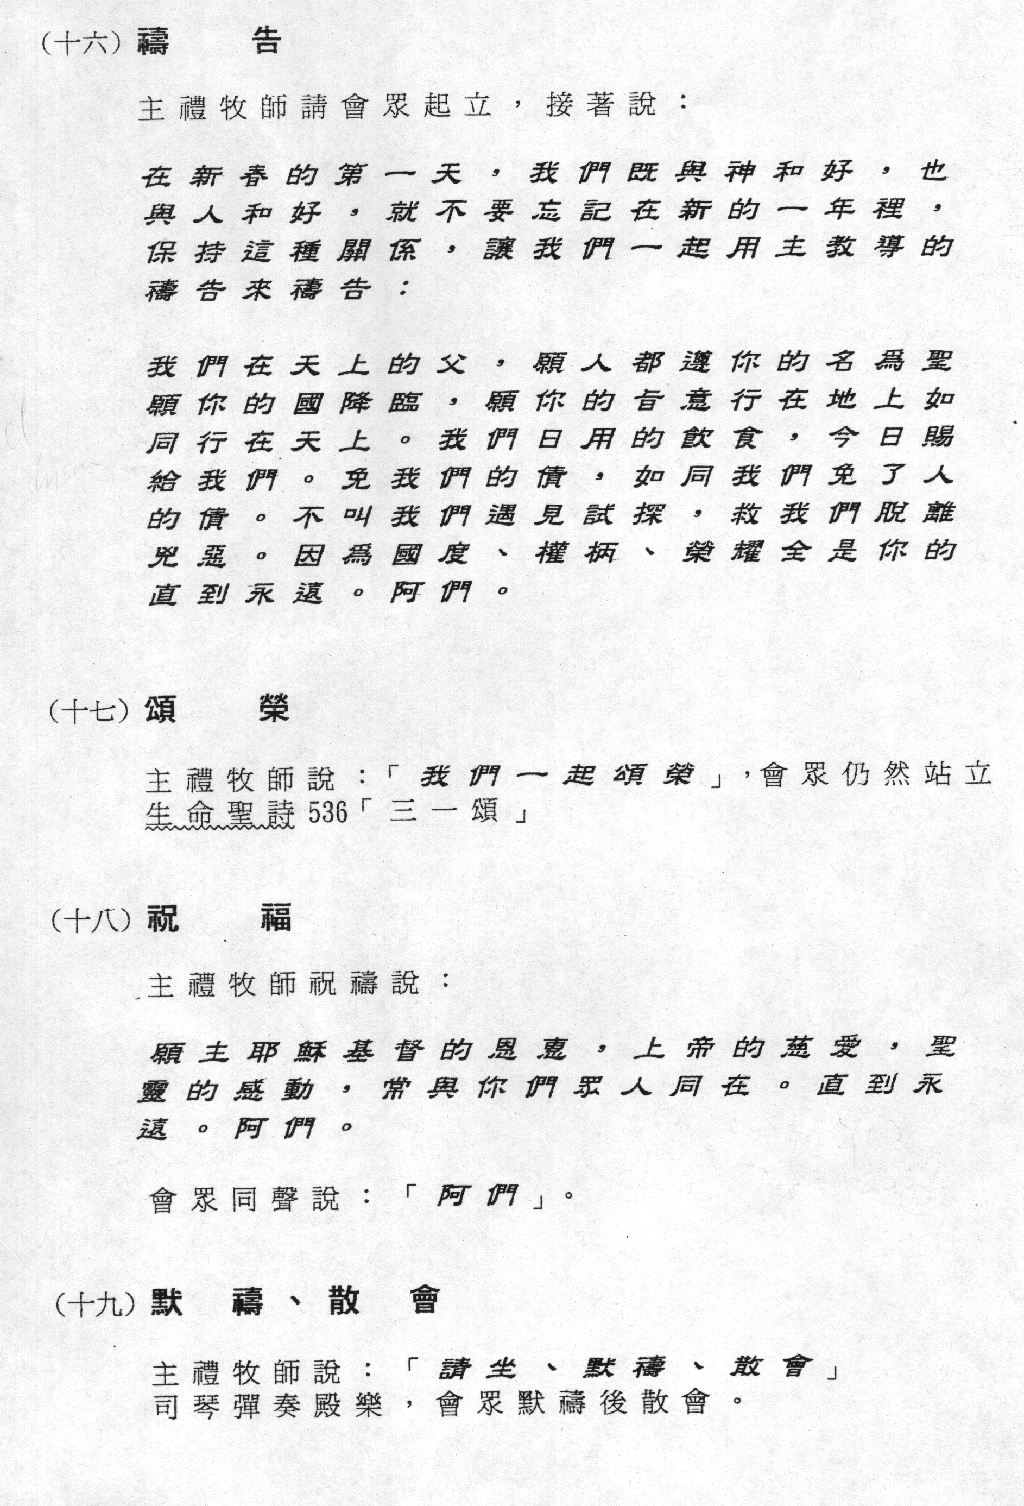 （十六）禱 告
主禮牧師請會眾起立，接著說：
在新春的第一天，我們既與神和好，也
與人和好，就不要忘記在新的一年裡，
保持這種關係，讓我們一起用主教導的
禱告來禱告：
我們在天上的父，願人都遵你的名為聖
願你的國降臨，願你的旨意行在地上如
同行在天上。我們日用的飲食，今日賜
給我們。免我們的債，如同我們免了人
的債。不叫我們遇見試探，救我們脫離
兇惡。因為國度、權柄、榮耀全是你的
直到永遠。阿們。
（十七）頌 榮
主禮牧師說：「我們一起頌榮」，會眾仍然站立
生命聖詩536「三一頌」
（十八）祝 福
主禮牧師祝禱說：
願主耶穌基督的恩惠，上帝的慈愛，聖
靈的感動，常與你們眾人同在。直到永
遠。阿們。
會眾同聲說：「阿們」。
（十九）默 禱、散 會
主禮牧師說：「請坐、默禱、散會」
司琴彈奏殿樂，會眾默禱後散會。